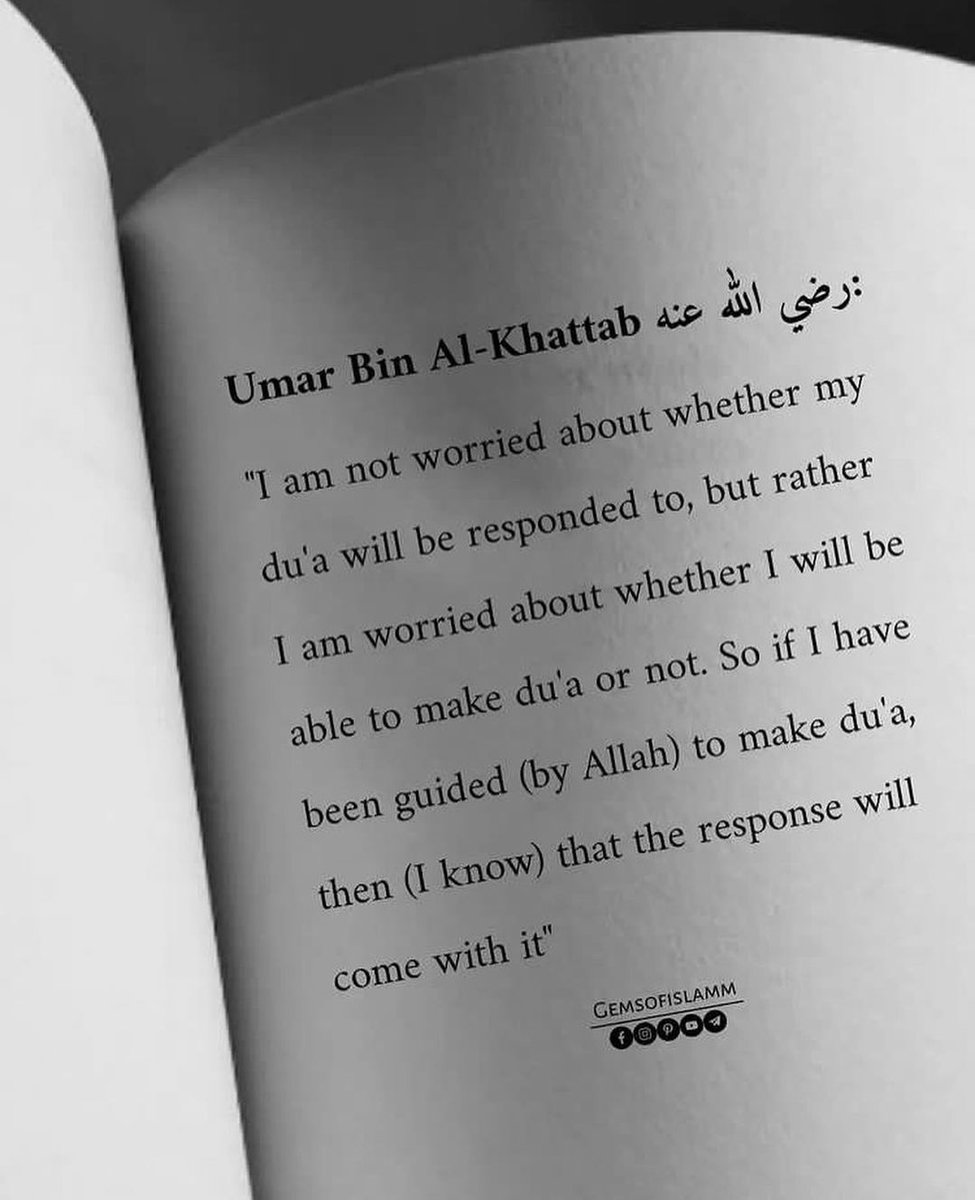 Umar Bin Al-Khattab رضي الله عنه:
"I am not worried about whether my
du'a will be responded to, but rather
I am worried about whether I will be
able to make du'a or not. So if I have
been guided (by Allah) to make du'a,
then (I know) that the response will
come with it"
GEMSOFISLAMM